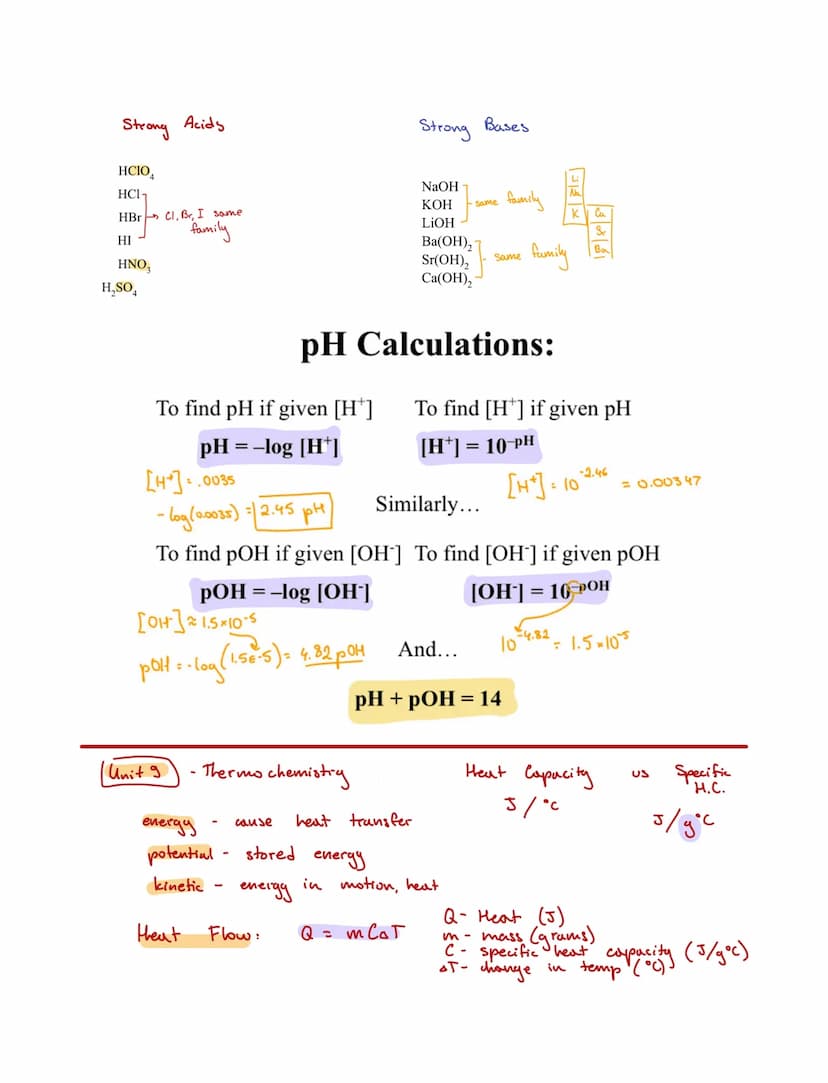 Strong Acids
HClO₄
HCl
HBr → Cl, Br, I same
family
HI
HNO₃
H₂SO₄
Strong Bases
NaOH
KOH same family
LiOH
Ba(OH)₂
Sr(OH)₂ same family
Ca(OH)₂
Li
Na
K Ca
Sr
Ba
pH Calculations:
To find pH if given [H⁺] To find [H⁺] if given pH
pH = –log [H⁺] [H⁺] = 10⁻ᵖᴴ
[H⁺] = .0035
- log(0.0035) = 2.45 pH
[H⁺] = 10^-2.46 = 0.00347
Similarly…
To find pOH if given [OH⁻] To find [OH⁻] if given pOH
pOH = –log [OH⁻] [OH⁻] = 10⁻ᵖᴼᴴ
[OH⁻] ≈ 1.5×10⁻⁵
pOH = -log(1.5E-5) = 4.82 pOH
10^-4.82 = 1.5×10⁻⁵
And…
pH + pOH = 14
Unit 9 - Thermochemistry
energy - cause heat transfer
potential - stored energy
kinetic - energy in motion, heat
Heat Capacity vs Specific
H.C.
J/°C J/g°C
Heat Flow: Q = mCΔT
Q- Heat (J)
m - mass (grams)
C - specific heat capacity (J/g°C)
ΔT- change in temp (°C)